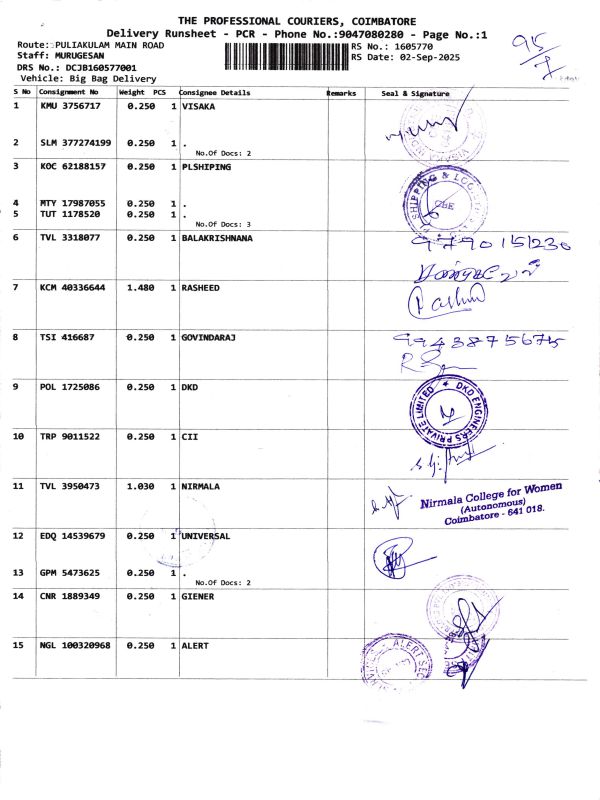 THE PROFESSIONAL COURIERS, COIMBATORE
Delivery Runsheet - PCR - Phone No.:9047080280 - Page No.:1
Route: PULIAKULAM MAIN ROAD RS No.: 1605770
Staff: MURUGESAN RS Date: 02-Sep-2025
DRS No.: DCJB160577001
Vehicle: Big Bag Delivery
95/7
S No Consignment No Weight PCS Consignee Details Remarks Seal & Signature
1 KMU 3756717 0.250 1 VISAKA
2 SLM 377274199 0.250 1 .
No.Of Docs: 2
3 KOC 62188157 0.250 1 PLSHIPING
SHIPPING & LOG
CBE
4 MTY 17987055 0.250 1 .
5 TUT 1178520 0.250 1 .
No.Of Docs: 3
6 TVL 3318077 0.250 1 BALAKRISHNANA
9790151230
7 KCM 40336644 1.480 1 RASHEED
8 TSI 416687 0.250 1 GOVINDARAJ
9943875675
9 POL 1725086 0.250 1 DKD
DKD ENGINEERS PRIVATE LIMITED
10 TRP 9011522 0.250 1 CII
11 TVL 3950473 1.030 1 NIRMALA
Nirmala College for Women
(Autonomous)
Coimbatore - 641 018.
12 EDQ 14539679 0.250 1 UNIVERSAL
13 GPM 5473625 0.250 1 .
No.Of Docs: 2
14 CNR 1889349 0.250 1 GIENER
15 NGL 100320968 0.250 1 ALERT
ALERT SEC